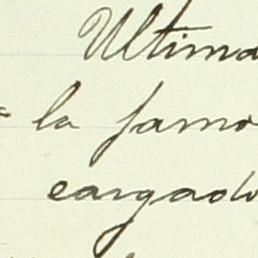 Ultima
= la famo
cargado